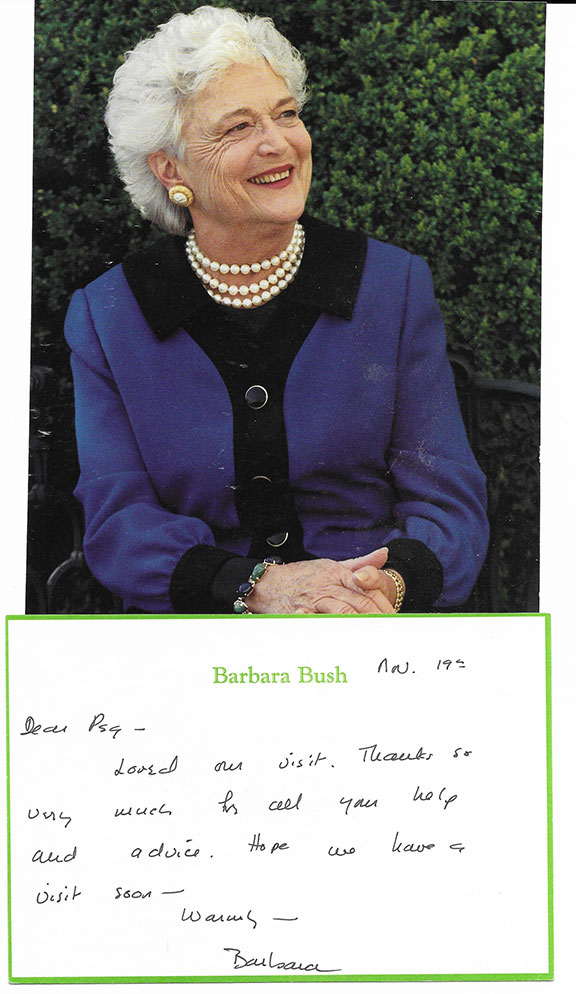 Barbara Bush
Nov. 19
Dear Peg –
Loved our visit. Thanks so
very much for all your help
and advice. Hope we have a
visit soon –
Warmly –
Barbara